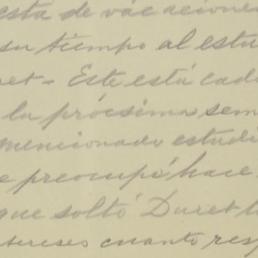 esta de vacaciones
su tiempo al estu
et - Este está cad
la prócsima sem
mencionado estudi
e preocupó hace
que soltó Duret l
tereses cuanto resp